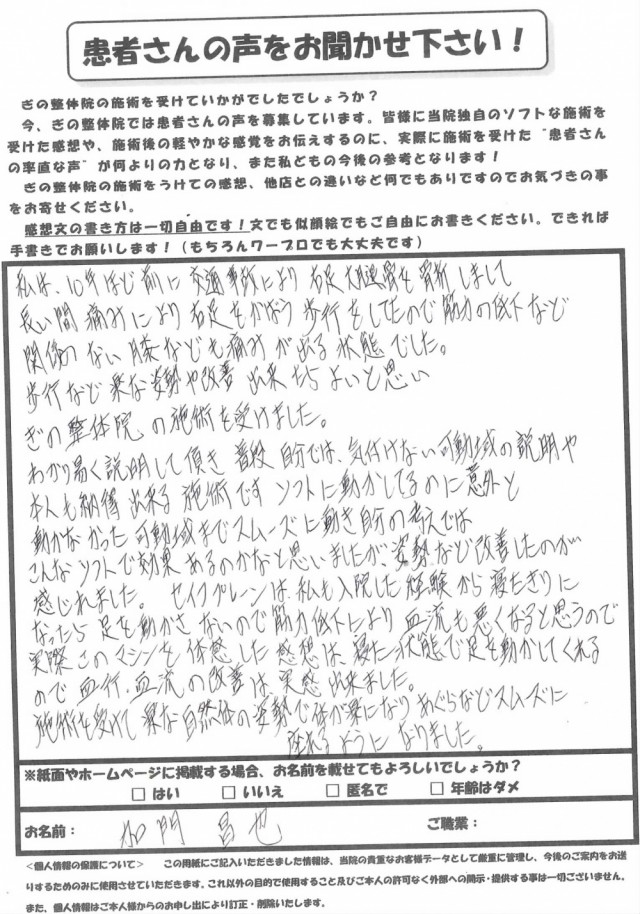 患者さんの声をお聞かせ下さい！
ぎの整体院の施術を受けていかがでしたでしょうか？
今、ぎの整体院では患者さんの声を募集しています。皆様に当院独自のソフトな施術を
受けた感想や、施術後の軽やかな感覚をお伝えするのに、実際に施術を受けた“患者さん
の率直な声”が何よりの力となり、また私どもの今後の参考となります！
ぎの整体院の施術をうけての感想、他店との違いなど何でもありですのでお気づきの事
をお寄せください。
感想文の書き方は一切自由です！文でも似顔絵でもご自由にお書きください。できれば
手書きでお願いします！（もちろんワープロでも大丈夫です）
私は、10年ほど前に交通事故により右足大腿骨を骨折しまして
長い間痛みにより右足をかばう歩行をしてたので筋力の低下など
関係のない膝なども痛みが出る状態でした。
歩行など楽な姿勢や改善出来たらよいと思い
ぎの整体院の施術を受けました。
わかり易く説明して頂き普段自分では、気付けない可動域の説明や
本人も納得出来る施術です ソフトに動かしてるのに意外と
動かなかった可動域までスムーズに動き自分の考えでは
こんなソフトで効果あるのかなと思いましたが、姿勢など改善したのが
感じれました。 セイクプレーンは、私も入院した経験から寝たきりに
なったら足を動かさないので筋力低下により血流も悪くなると思うので
実際このマシンを体感した感想は、寝た状態で足を動かしてくれる
ので血行、血流の改善は実感出来ました。
施術を受けて楽な自然体の姿勢で体が楽になりあぐらなどスムーズに
座れるようになりました。
※紙面やホームページに掲載する場合、お名前を載せてもよろしいでしょうか？
□ はい □ いいえ □ 匿名で □ 年齢はダメ
お名前： 門 昌也 ご職業：
＜個人情報の保護について＞ この用紙にご記入いただきました情報は、当院の貴重なお客様データとして厳重に管理し、今後のご案内をお送
りするためのみに使用させていただきます。これ以外の目的で使用すること及びご本人の許可なく外部への開示・提供する事は一切ございません。
また、個人情報はご本人様からのお申し出により訂正・削除いたします。